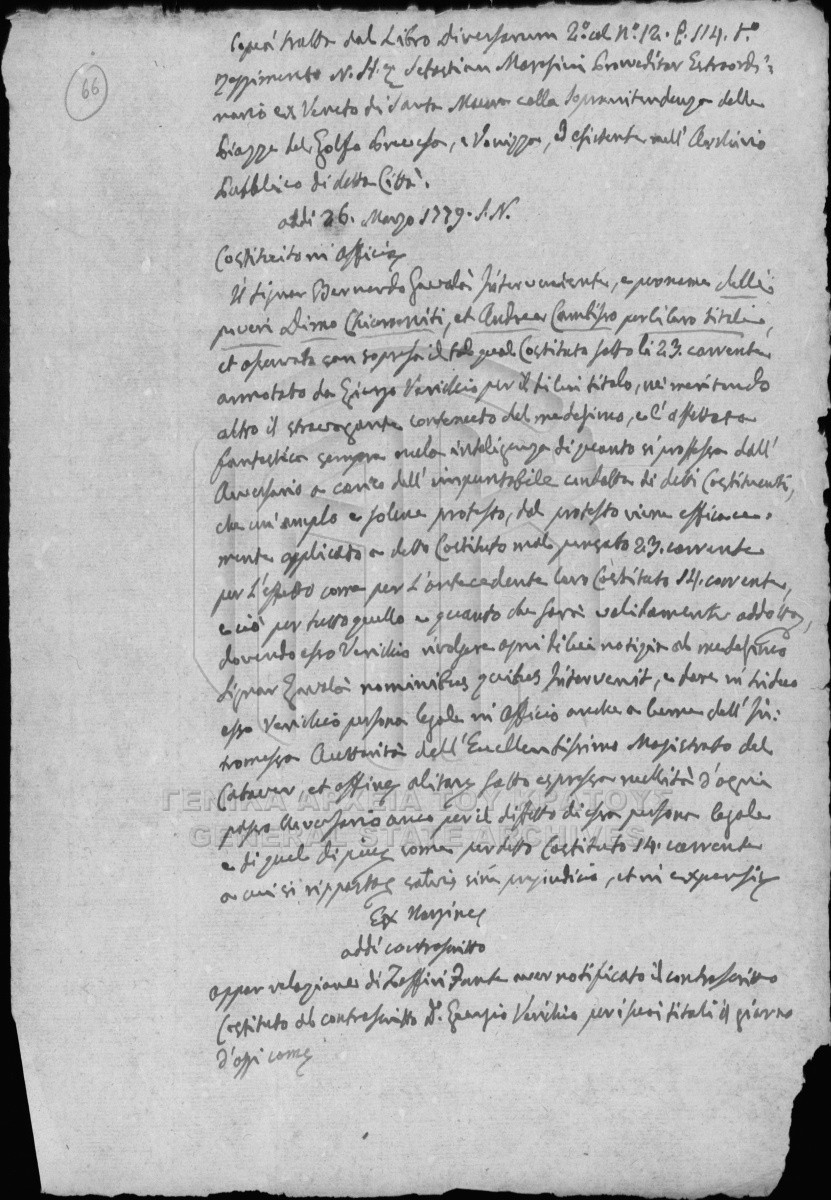 66
Copia tratta dal Libro Diversorum 2.º col Nº. 12. C. 114. tº
Reggimento N. H. Sebastian Morosini Proveditor Estraordi-
nario ex Veneto di Santa Maura colla Sopraintendenza delle
Piazze del Golfo Prevesa, e Vonizza, ed esistente nell' Archivio
Pubblico di detta Città.
addi 26. Marzo 1779. S. N.
Costituito in Officio
Il Signor Bernardo Interveniente, e per nome delli
Dimo et Andrea per li loro titoli,
et osservato con sopresa il tal qual Costituto sotto li 23. corrente
annotato da Giorgo Vericchio per il di lui titolo, nei meritando
altro il stravagante contenuto del medesimo, e l' affettata
fantastica sempre mala inteligenza di quanto si professa dall'
Aversario a carico dell' inpuntabile condotta di detti Costituenti,
che un' amplo e solene protesto, tal protesto viene efficace-
mente applicato a detto Costituto mal pensato 23. corrente
per l' effetto come per l' antecedente loro Costituto 14. corrente,
e ciò per tutto quello e quanto che sarà validamente addotto,
dovendo esso Vericchio rivolgere ogni di lui notizia al medesimo
Signor nominibus quibus Intervenit, e dare in triduo
esso Vericchio persona legale in Officio anche a lume dell' In-
tromessa Auttorità dell' Eccellentissimo Magistrato del
Cataver, et affine militare sotto espressa nullità d' ogni
passo Aversario anco per il diffetto di essa persona legale
e di quel di più come per detto Costituto 14. corrente
a cui si ripporta salvis sine prejudicio, et in expensis
Ex Margine
addi contrascritto
appar relazione di Zeffiri Fante aver notificato il contrascritto
Costituto al contrascritto Dr. Giorgio Vericchio per i suoi titoli il giorno
d' oggi come
ΓΕΝΙΚΑ ΑΡΧΕΙΑ ΤΟΥ ΚΡΑΤΟΥΣ
GENERAL STATE ARCHIVES